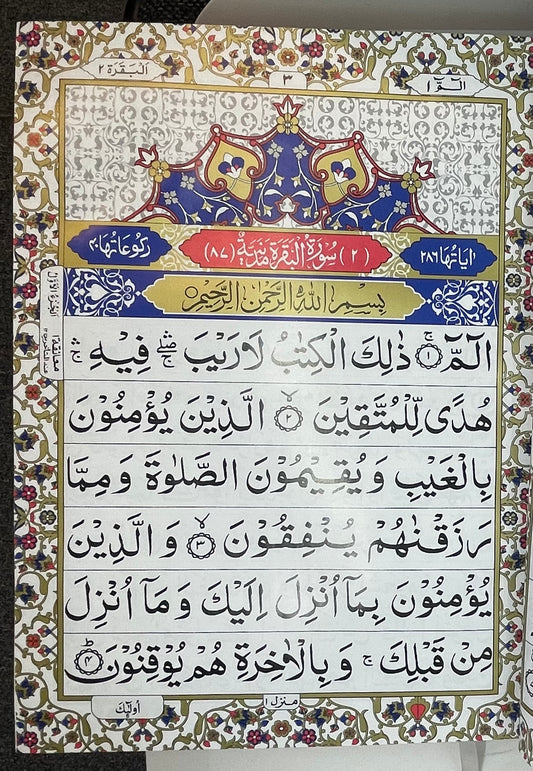 البقرة ٢
٣
الٓمّٓ ١
اٰیَاتُهَا ٢٨٦
(٢) سُوْرَةُ الْبَقَرَةِ مَدَنِيَّةٌ (٨٧)
رُكُوْعَاتُهَا ٤٠
بِسْمِ اللّٰهِ الرَّحْمٰنِ الرَّحِيْمِ
الٓمّٓ ۚ﴿١﴾ ذٰلِكَ الْكِتٰبُ لَا رَيْبَ ۛۚ فِيْهِ ۛۚ
هُدًى لِّلْمُتَّقِيْنَ ۙ﴿٢﴾ الَّذِيْنَ يُؤْمِنُوْنَ
بِالْغَيْبِ وَيُقِيْمُوْنَ الصَّلٰوةَ وَمِمَّا
رَزَقْنٰهُمْ يُنْفِقُوْنَ ۙ﴿٣﴾ وَالَّذِيْنَ
يُؤْمِنُوْنَ بِمَآ اُنْزِلَ اِلَيْكَ وَمَآ اُنْزِلَ
مِنْ قَبْلِكَ ۚ وَبِالْاٰخِرَةِ هُمْ يُوْقِنُوْنَ ؕ﴿٤﴾
منزل ١
اُولٰٓئِكَ